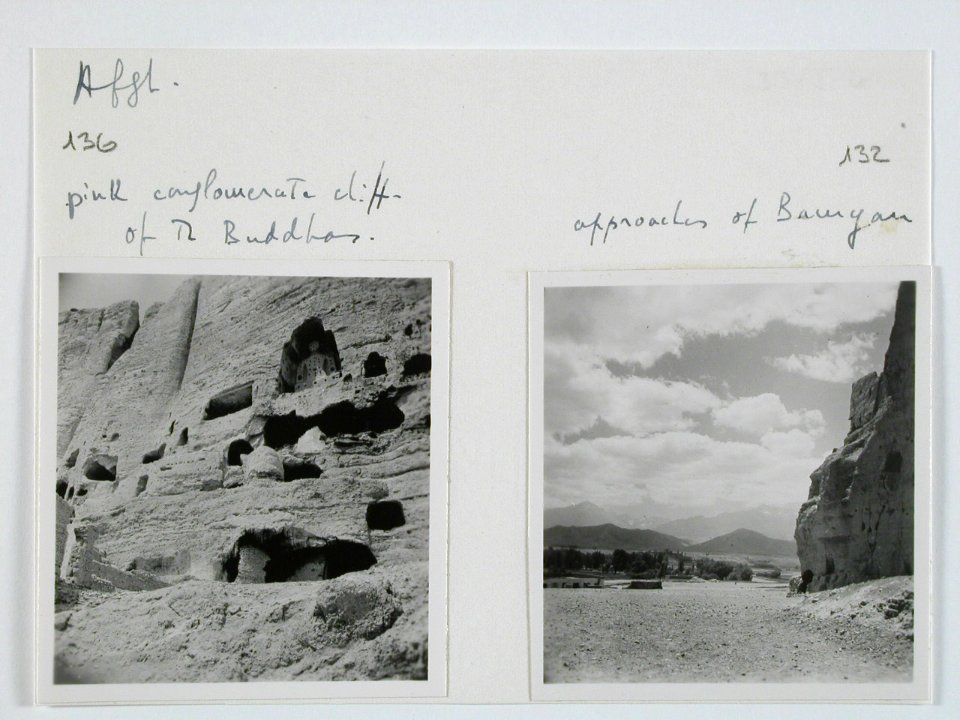 Afgh.
136
pink conglomerate cliff-
of the Buddhas.
132
approaches of Bamyan